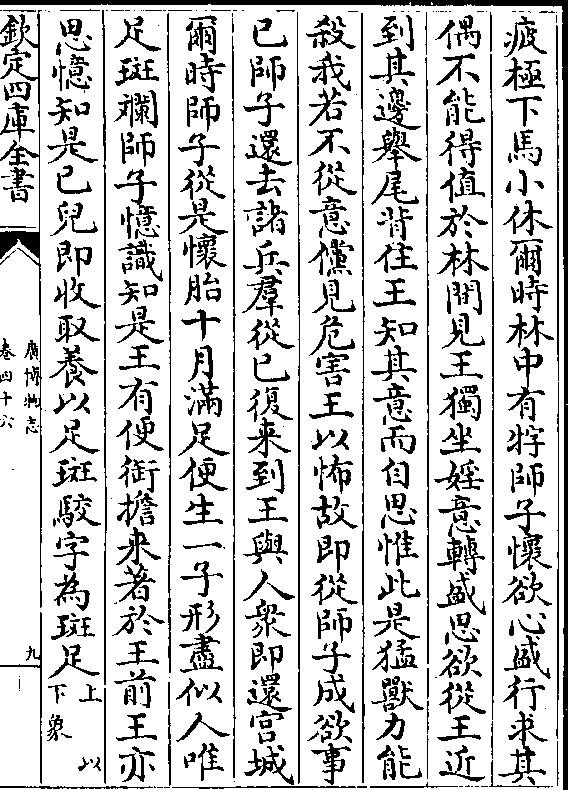 疲極下馬小休爾時林中有牸師子懷欲心盛行求其
偶不能得值於林間見王獨坐婬意轉盛思欲從王近
到其邊舉尾背住王知其意而自思惟此是猛獸力能
殺我若不從意儻見危害王以怖故即從師子成欲事
已師子還去諸兵羣從已復来到王與人衆即還宫城
爾時師子從是懷胎十月滿足便生一子形盡似人唯
足斑斕師子憶識知是王有便銜擔来著於王前王亦
思憶知是已兒即收取養以足斑駮字為斑足
以上
下象
欽定四庫全書
廣博物志
卷四十六
九